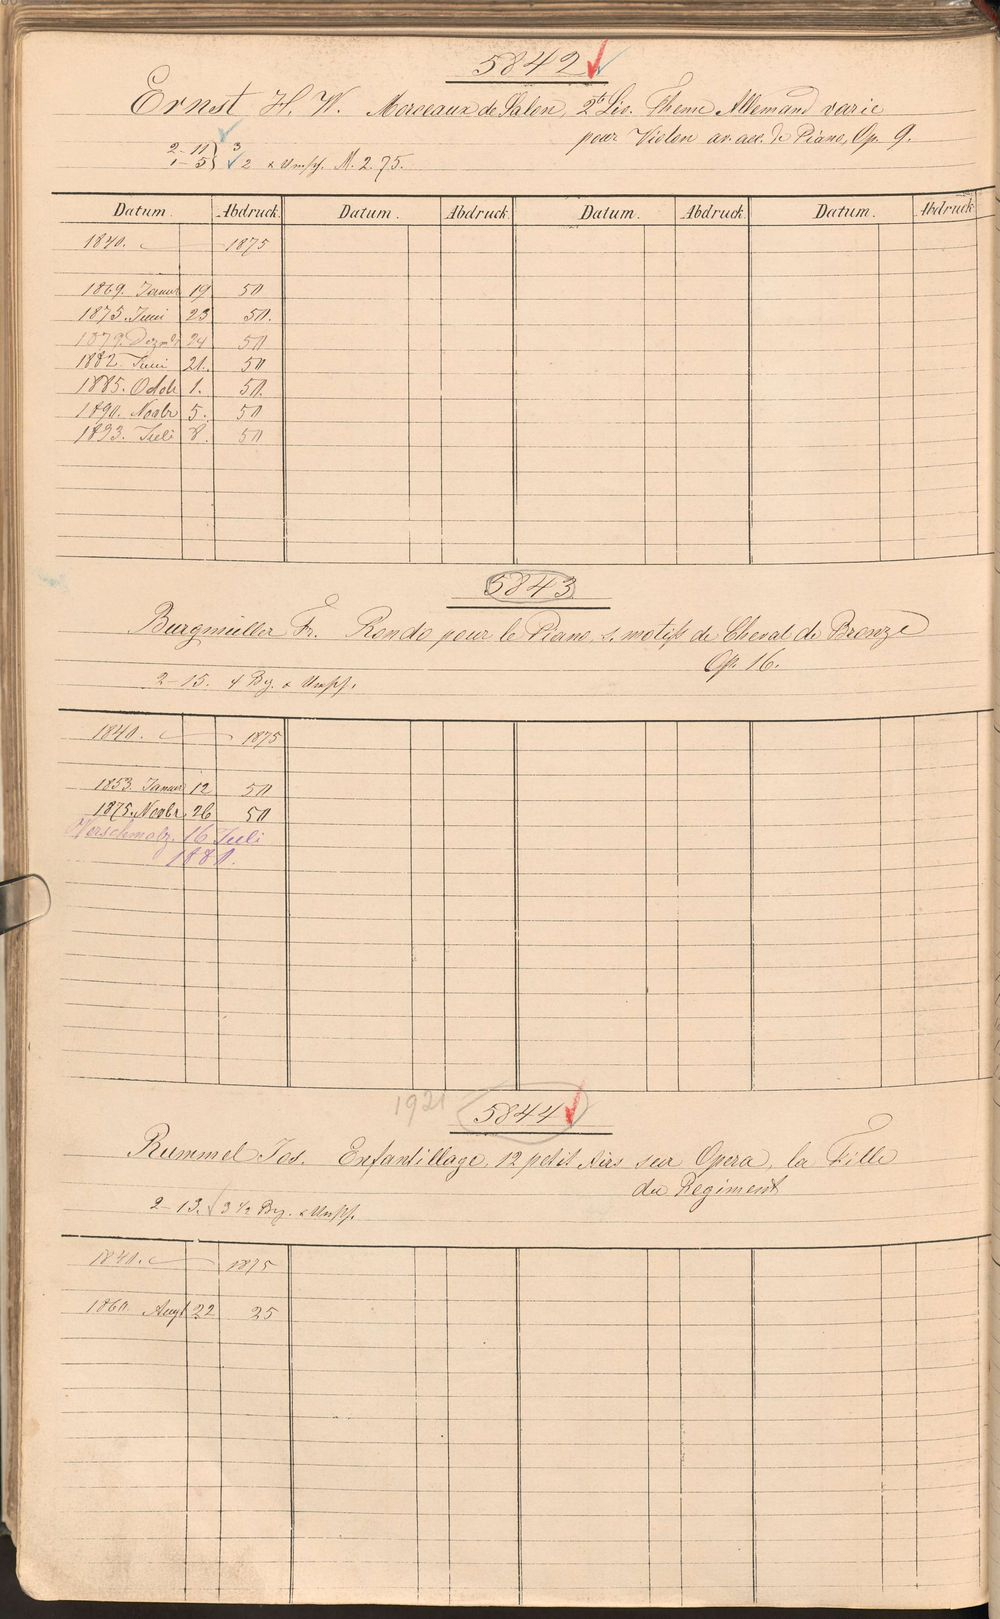 5842
Ernst H. W. Morceaux de Salon, 2t Liv. Theme Allemand varie
pour Violon av. acc. de Piano, Op. 9.
2-11 } 3
1-5 } 2 & Umschl. M. 2.75.
Datum. Abdruck. Datum. Abdruck. Datum. Abdruck. Datum. Abdruck.
1840. 1875
1869. Januar 19 50
1875. Juni 23 50.
1879. Dezmbr 24 50
1882. Juni 21. 50
1885. Octob 1. 50.
1890. Novbr 5. 50
1893. Juli 8. 50
5843
Burgmüller Fr. Rondo pour le Piano, s. motifs de Cheval de Bronze
Op. 16.
2-15. 4 Bg. & Umschl.
1840. 1875
1853. Januar 12 50
1875. Novbr. 26 50
Verschmolz. 16 Juli
1880.
1921 5844
Rummel Jos. Enfantillage, 12 petit Airs sur Opera, la Fille
du Regiment
2-13. 3 1/2 Bg. & Umschl.
1840. 1875
1860. Augt 22 25